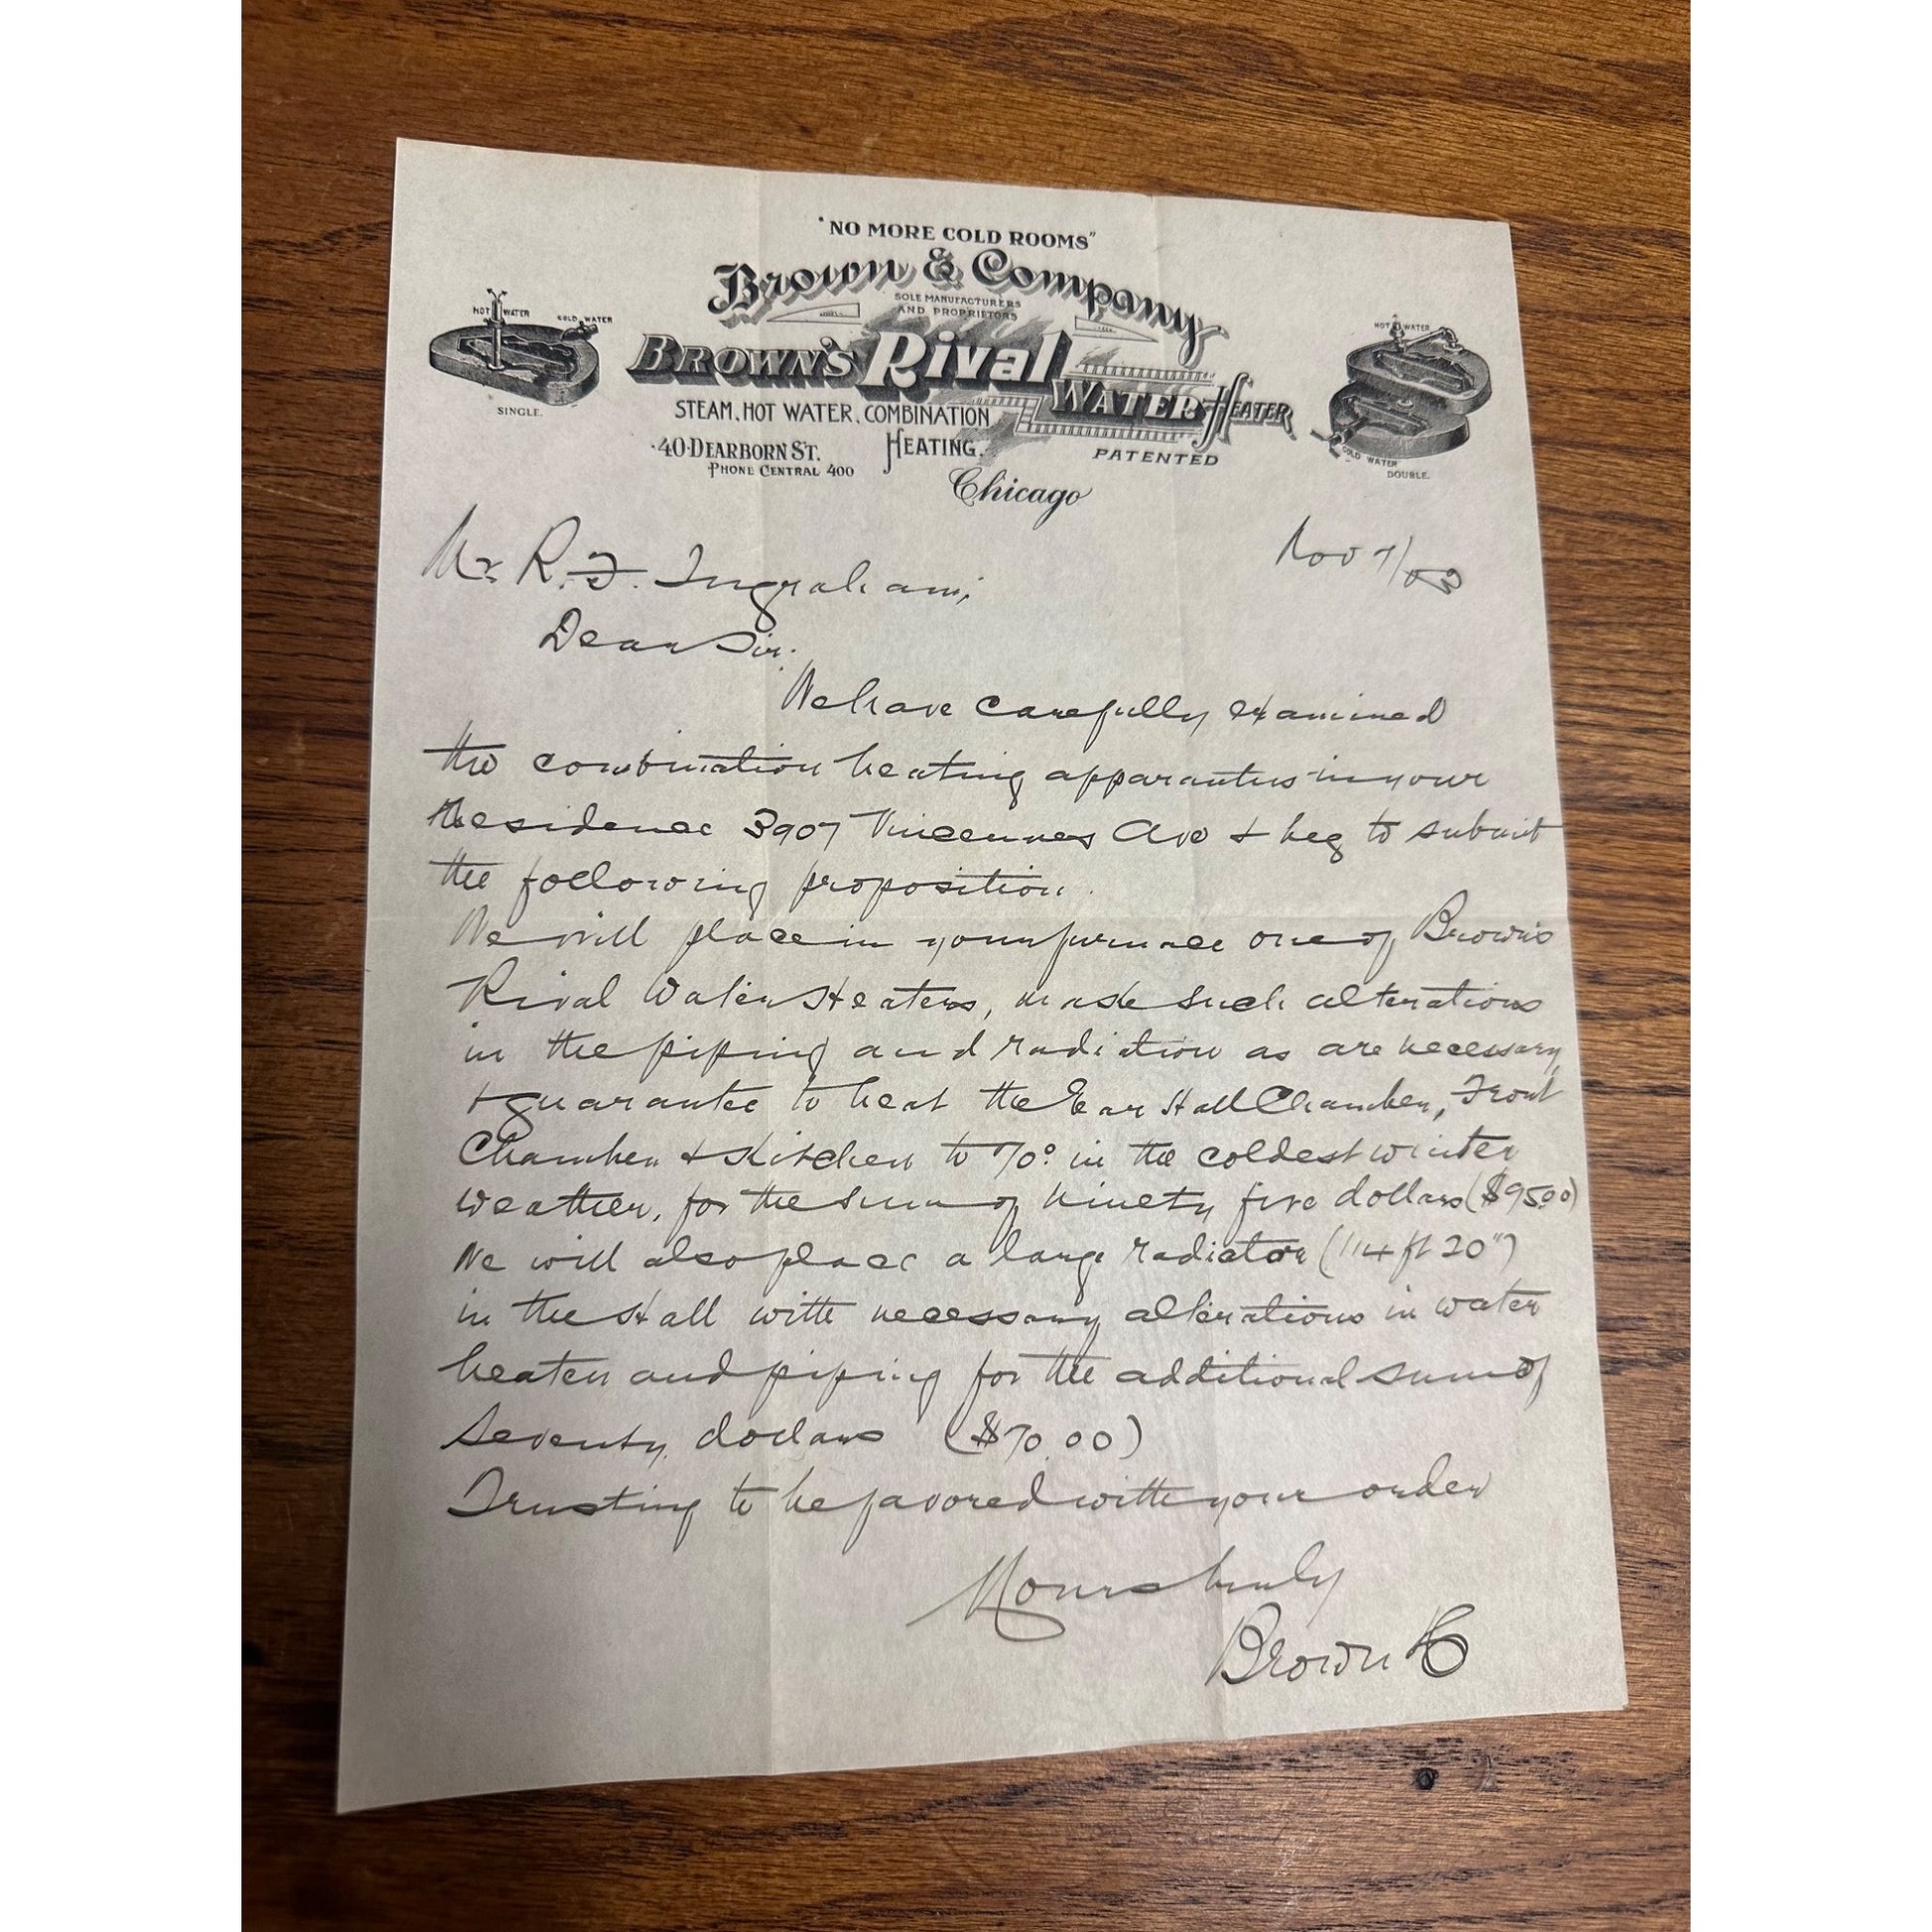 "NO MORE COLD ROOMS"
Brown & Company
SOLE MANUFACTURERS
AND PROPRIETORS
HOT WATER
COLD WATER
SINGLE.
BROWN'S Rival WATER HEATER
HOT WATER
COLD WATER
DOUBLE.
STEAM, HOT WATER, COMBINATION
HEATING.
PATENTED
·40·DEARBORN ST.
PHONE CENTRAL 400
Chicago
Nov 7/03
Mr R. F. Ingraham,
Dear Sir.
We have carefully examined
the combination heating apparatus in your
Residence 3907 Vincennes Ave & beg to submit
the following proposition.
We will place in your furnace one of Brown's
Rival Water Heaters, make such alterations
in the piping and radiation as are necessary
& guarantee to heat the Hall Chamber, Front
Chamber & Kitchen to 70° in the coldest winter
weather, for the sum of ninety five dollars ($95.00)
We will also place a large radiator (114 ft 20")
in the Hall with necessary alterations in water
heater and piping for the additional sum of
Seventy dollars ($70.00)
Trusting to be favored with your order
Yours truly
Brown & Co